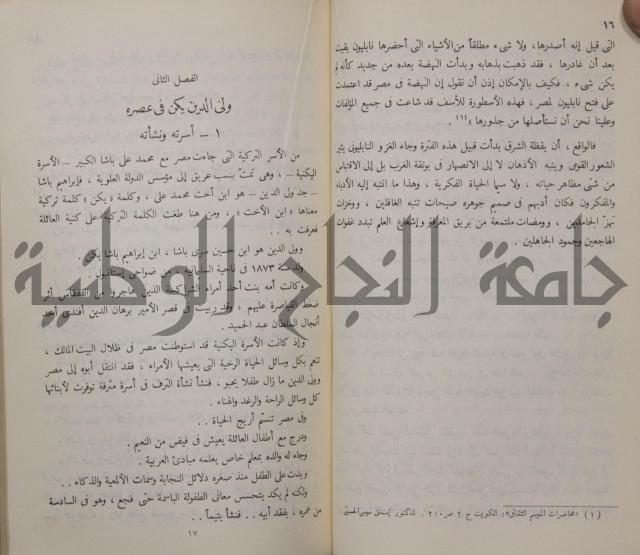 ١٦
التى قيل إنه أصدرها، ولا شىء مطلقاً من الأشياء التى أحضرها نابليون بقيت
بعد أن غادرها ، فقد ذهبت بذهابه وبدأت النهضة بعده من جديد كأنه لم
يكن شىء ، فكيف بالإمكان إذن أن نقول إن النهضة فى مصر قد اعتمدت
على فتح نابليون لمصر، فهذه الأسطورة للأسف قد شاعت فى جميع المؤلفات
وعلينا نحن أن نستأصلها من جذورها »(١) .
فالواقع ، أن يقظة الشرق بدأت قبيل هذه الفترة وجاء الغزو النابليونى يثير
الشعور القومى وينبه الأذهان لا إلى الانصهار فى بوتقة الغرب بل إلى الاقتباس
من شتى مظاهر حياته ، ولا سيما الحياة الفكرية ، وهذا ما انتبه إليه الأدباء
والمفكرون فكان أدبهم فى صميم جوهره صيحات تنبه الغافلين ، ووخزات
تهز الخاملين ، وومضات ملتمعة من بريق المعرفة وإشعاع العلم تبدد غفوات
الهاجعين وجمود الجاهلين .
(١) «محاضرات الموسم الثقافى»: الكويت ج ٢ ص ٢١٠ . للدكتور إسحق موسى الحسينى
الفصل الثانى
ولى الدين يكن فى عصره
١ – أسرته ونشأته
من الأسر التركية التى جاءت مصر مع محمد على باشا الكبير – الأسرة
اليكنية – ، وهى تمت بنسب عريق إلى مؤسس الدولة العلوية ، فإبراهيم باشا
– جد ولى الدين – هو ابن أخت محمد على ، وكلمة « يكن » كلمة تركية
معناها « ابن الأخت » ، ومن هنا طغت الكلمة التركية على كنية العائلة
فعرفت به . .
وولى الدين هو ابن حسين سرى باشا ، ابن إبراهيم باشا يكن .
ولد سنة ١٨٧٣ فى ناحية السليمانية من ضواحى إستانبول .
وكانت أمه بنت أحد أمراء الشراكسة الذين هاجروا من القفقاس أثر
ضغط القياصرة عليهم ، وقد ربيت فى قصر الأمير برهان الدين أفندى أحد
أنجال السلطان عبد الحميد .
وإذ كانت الأسرة اليكنية قد استوطنت مصر فى ظلال البيت المالك ،
تنعم بكل وسائل الحياة الرخية التى يعيشها الأمراء ، فقد انتقل أبوه إلى مصر
وولى الدين ما زال طفلا يحبو ، فنشأ نشأة الترف فى أسرة مترفة توفرت لأبنائها
كل وسائل الراحة والرغد والهناء .
وفى مصر تنسّم أريج الحياة . .
ودرج مع أطفال العائلة يعيش فى فيض من النعيم .
وجاء له والده بمعلم خاص يعلمه مبادئ العربية .
وبدت على الطفل منذ صغره دلائل النجابة وسمات الألمعية والذكاء . .
ولكنه لم يكد يتحسس معانى الطفولة الباسمة حتى فجع ، وهو فى السادسة
من عمره ، بفقد أبيه . . فنشأ يتيماً . .
١٧
جامعة النجاح الوطنية